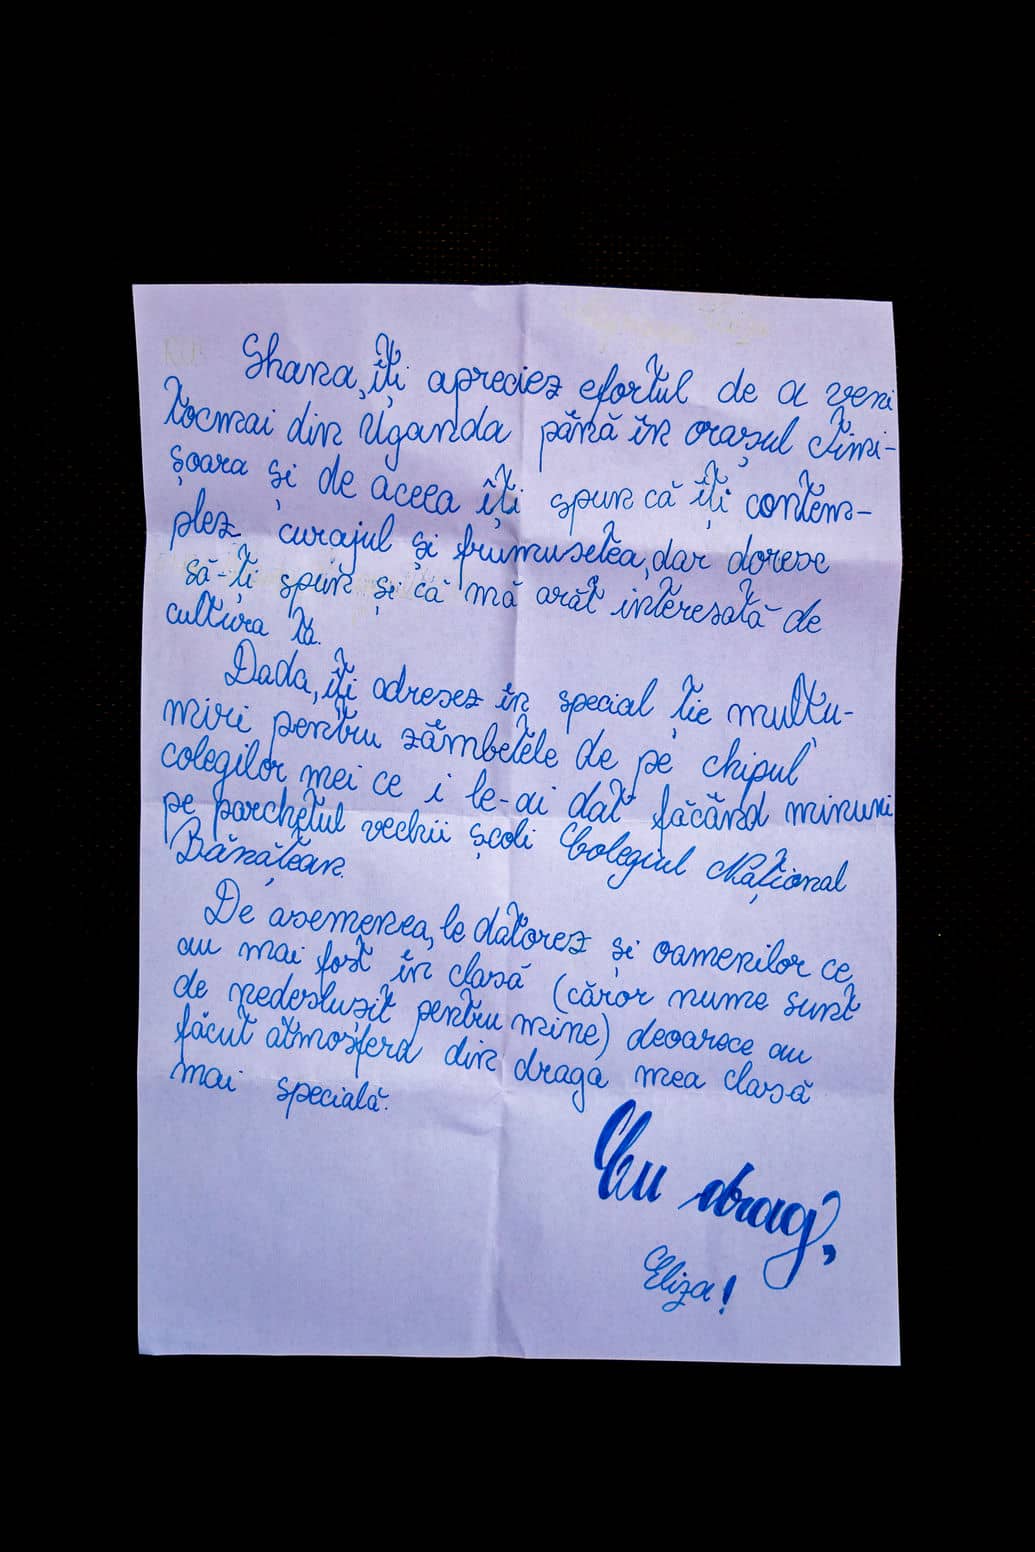 Shana, îți apreciez efortul de a veni
tocmai din Uganda până în orașul Timi-
șoara și de aceea îți spun că îți contem-
plez curajul și frumusetea, dar doresc
să-ți spun și că mă arăt interesată de
cultura ta.
Dada, îți adresez în special ție multu-
miri pentru zâmbetele de pe chipul
colegilor mei ce i le-ai dat făcând minuni
pe parchetul vechii școli Colegiul Național
Bănățean.
De asemenea, le datorez și oamenilor ce
au mai fost în clasă (căror nume sunt
de nedeslușit pentru mine) deoarece au
făcut atmosfera din draga mea clasă
mai specială.
Cu drag,
Eliza!